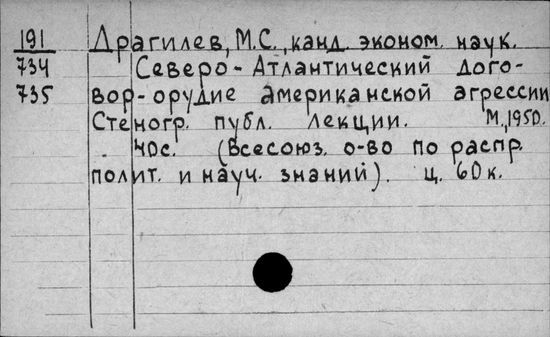 191 Драгилев, М.С., канд. эконом. наук.
734 Северо-Атлантический дого-
735 вор-орудие американской агрессии
Стеногр. публ. лекции. М., 1950.
40с. (Всесоюз. о-во по распр.
полит. и науч. знаний). ц. 60к.